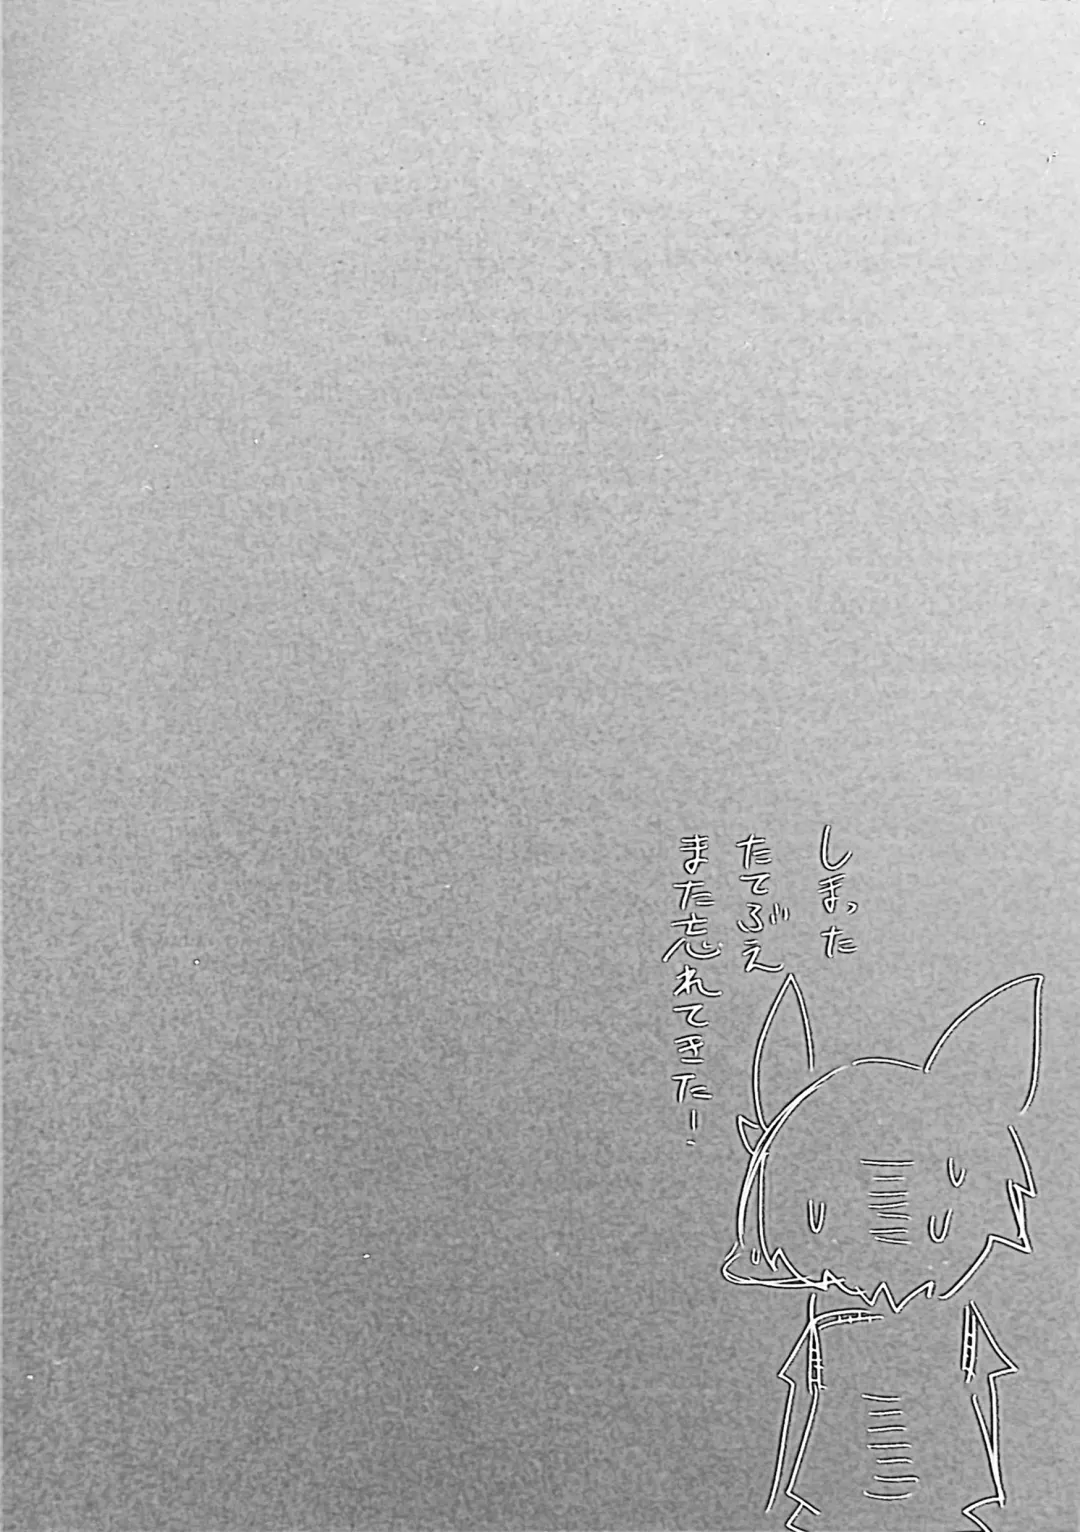 しまった
たてぶえ
また忘れてきたー.